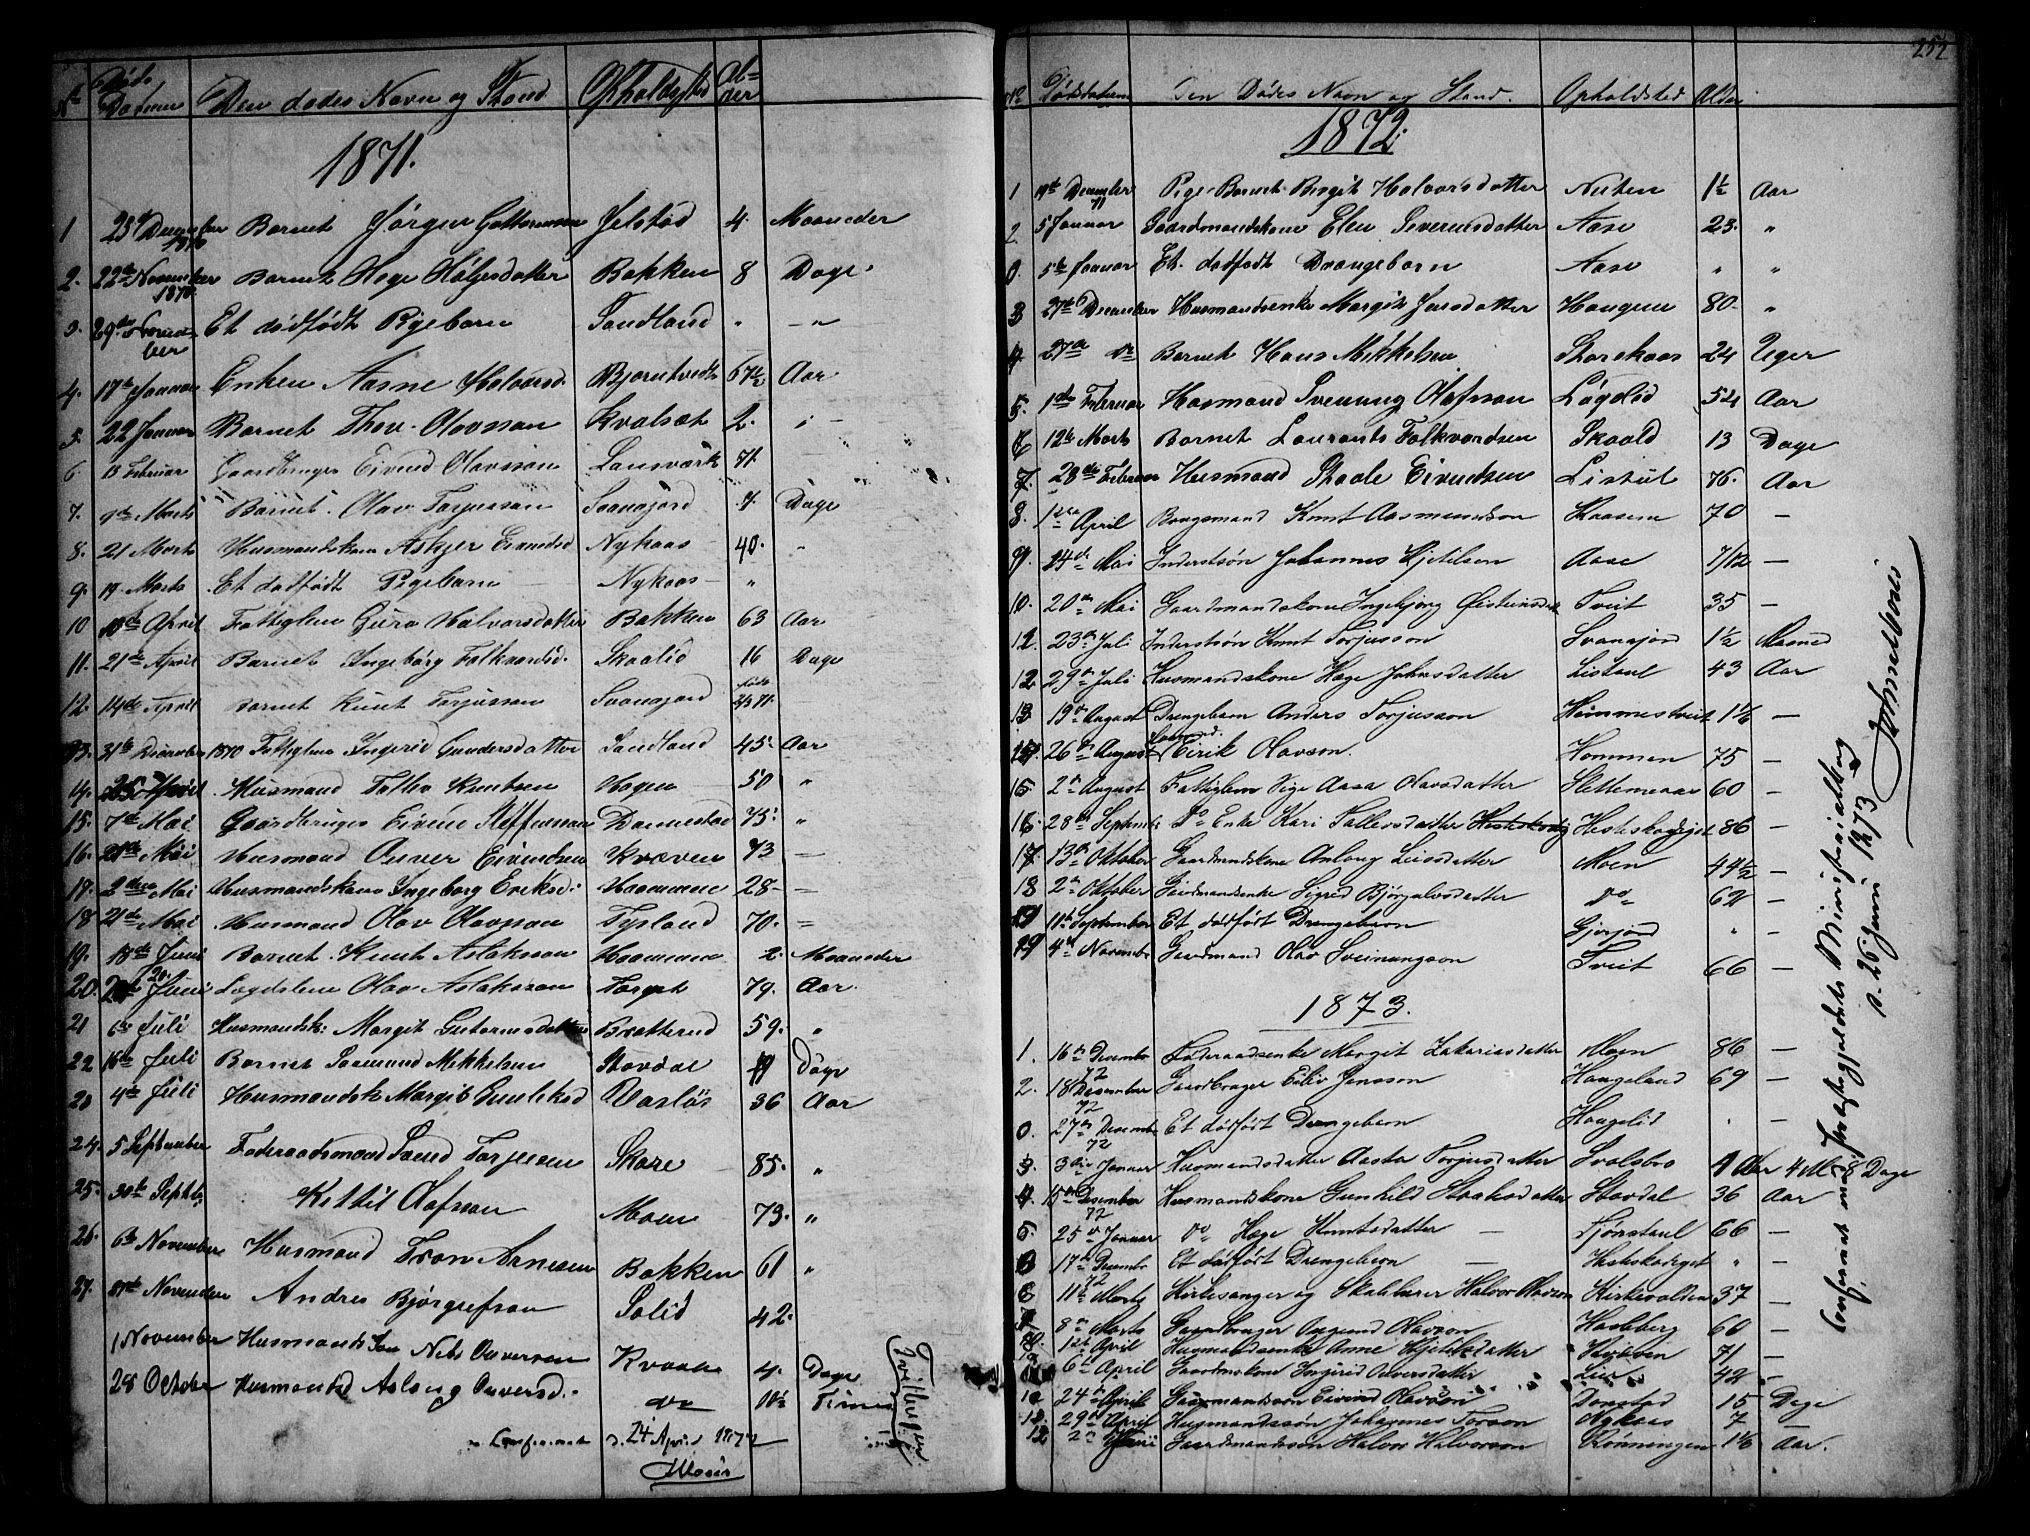 No Døds Datum Den dødes Navn og Stand Opholdssted Alder
1871.
1 23de December 1870 Barnet Jørgen Guttormsen Jelstad 4. Maaneder
2. 22de November 1870 Barnet Hege Helgesdatter Bakken 8 Dage
3. 29de November Et dødfødt Pigebarn Sandland " — "
4. 17de Januar Enken Aasne Halvorsd. Bjørntvedt 67½ Aar
5. 22 Januar Barnet Thov Olovson Kvalsæt 2. " —
6 13 Februar Gaardbruger Eivind Olavson Lansværk 71. —
7. 9de Marts Barnet Olav Torjusson Svanajord 7. Dage
8. 21 Marts Husmandskone Askjer Eivindsd Nykaas 40. "
9. 19. Marts Et dødfødt Pigebarn — Nykaas — "
10 10de April Fattiglem Guro Halvorsdatter Bakken 63 Aar
11. 21de April Barnet Ingebørg Folkvordsd. Skaalid 16 Dage
12. 14de April Barnet Knut Torjusson Svanajord født 2/3 71.
13. 31te December 1870 Fattiglem Ingerid Gundersdatter Sandland 45. Aar
14. 25 April Husmand Folke Knutsen Hagen 50 "
15. 7de Mai Gaardbruger Eivind Steffensson Dannestad 75. "
16. 21de Mai Husmand Anver Eivindsen Kvæven 73 —
17. 2den Mai Husmandskone Ingeborg Eriksd. Haammene 28 —
18 21de Mai Husmand Olav Olavson Tysland 70. —
19. 18de Juni Barnet Knut Aslaksson Haammene 2. Maaneder
20. 20 Juni Lægdslem Olav Aslaksson Torget 79. Aar
21 6te Juli Husmandsk: Margit Gutormsdatter Bratterud 59. "
22 16de Juli Barnet Saamund Mikkelsen Stavdal 19 Dage
23 4de Juli Husmandsk Margit Gunleksd Vasløs 36 Aar
24. 5 September Føderaadsmand Saavd Torjusen Skore 85. "
25. 30te Septbr. Kittil Olafson Moen 73. "
26. 6te November Husmand Tron Arnesen Bakken 61 "
27. 31te November Andres Bjørgulfson Solid 42.
1 November Husmands Søn Nils Anversen Kvaale 4. Dage
28 October Husmandsd Aslaug Anversd. do 10½ Timer
Tvillinger
Confereret d. 24 April 1872
252
No Dødsdatum Den Dødes Navn og Stand. Opholdsted Alder
1872.
1 19de December 71 Pige-Barnet Birgit Halvorsdatter Nuten 1½ Aar
2 5 Januar Gaardmandskone Elen Severinsdatter Aase 23. "
0. 5te Januar Et dødfødt Drengebarn Aase " "
3 27de December Husmandsenke Margit Jensdatter Haugene 80. "
4 27de do Barnet Hans Mikkelsen Storekaas 24 Uger
5. 1de Februar Husmand Svennung Olafson Løgdlid 54 Aar
6 12te Marts Barnet Laurants Folkvordsen Skaalid 13 Dage
7. 28de Februar Husmand Staale Eivindsen Listul 76. Aar
8. 1ste April Baugsmand Knut Aasmundson Haasene 70 —
9. 24de Mai Inderstsøn Johannes Kjetilsen Aase 7/12 —
10. 20de Mai Gaardmandskone Ingebjorg Øisteinsdat Tveit 35 —
12. 23de Juli Inderstsøn Knut Torjusson Svanajor 1½ Maaned
12. 29de Juli Husmandskone Hæge Johnsdatter Listaul 43 Aar
13 19de August Drengebarn Anders Torjusson Himmestveit 1⅙ —
26de August Eirik Olavson. Hommen 75 —
15 2de August Fattiglem Pige Aasa Olavsdatter Slettemeaas 60 —
16. 28de Septembr. Do Enke Kari Tallevsdatter Hesteskodiget 86 —
17 13de Oktober Gaardmandskone Anlaug Leivsdatter Moen 44½ —
18 2de Oktober Gaardmandsenke Sigrid Bjørgulvsdatter Do 62 —
11te September Et dødfødt Drengebarn Gjerjord " —
19 4de November Gaardmand Olav Sveinungson Tveit 66 —
1873.
1. 16de Desembr 72 Føderaadsenke Margit Zakariasdatter Moen 86 —
2. 18 Desember 72 Gaardbruger Eiliv Jensson Haugeland 69 —
0. 27de Desember 72 Et dødfødt Drengebarn Haugelid . —
3. 3die Januar Husmandsdatter Aasta Torjusdatter Svalsbro 1 Aar 4 M 8 Dage
4. 15de Desember 72 Husmandskone Gunhild Staaksdatter Stavdal 36 Aar
5. 25de Januar Do Hæge Knutsdatter — Tjønstaul 66 —
17de Desembr 72 Et dødfødt Drengebarn — Hesteskodiget " —
6 11te Marts Kirkesanger og Skolelærer Halvor Olavson Kirkevolden 37 —
7. 8de Marts Gaardbruger Aasmund Olavson Hasleberg 60 —
12te April Husmandsenke Anne Kjetilsdatter Kvæven 71 —
6te April Gaardmdskone Ingerid Olversdatter Lie 42 —
24de April Gaardmandsson Eivind Olavson Donstad 15 Dage
29de April Husmandssøn Johannes Torson Nykaas 7 —
12 2de Juni Gaardmandssøn Halvor Halvorson Rønningen 1⅙ Aar.
Confereret med Præstegjældets Ministerialbog
d. 26 Juni 1873